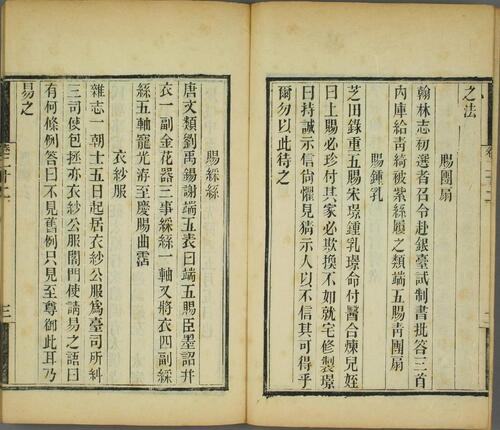 之法
賜團扇
翰林志初選者召令赴銀臺試制書批答三首
內庫給青綺被紫絲履之類端五賜青團扇
賜鍾乳
芝田錄重五賜宋璟鍾乳璟命付醫合煉兒姪
曰上賜必珍付其家必欺換不如就宅修製璟
曰持誠示信尚懼見猜示人以不信其可得乎
爾勿以此待之
賜綵絲
唐文類劉禹錫謝端五表曰端五賜臣墨詔并
衣一副金花器三事綵絲一軸又將衣四副綵
絲五軸寵光洊至慶賜曲霑
衣紗服
雜志一朝士五日起居衣紗公服為臺司所糾
三司使包拯亦衣紗公服閤門使請易之語曰
有何條例答曰不見舊例只見至尊御此耳乃
易之
卷二十二
三